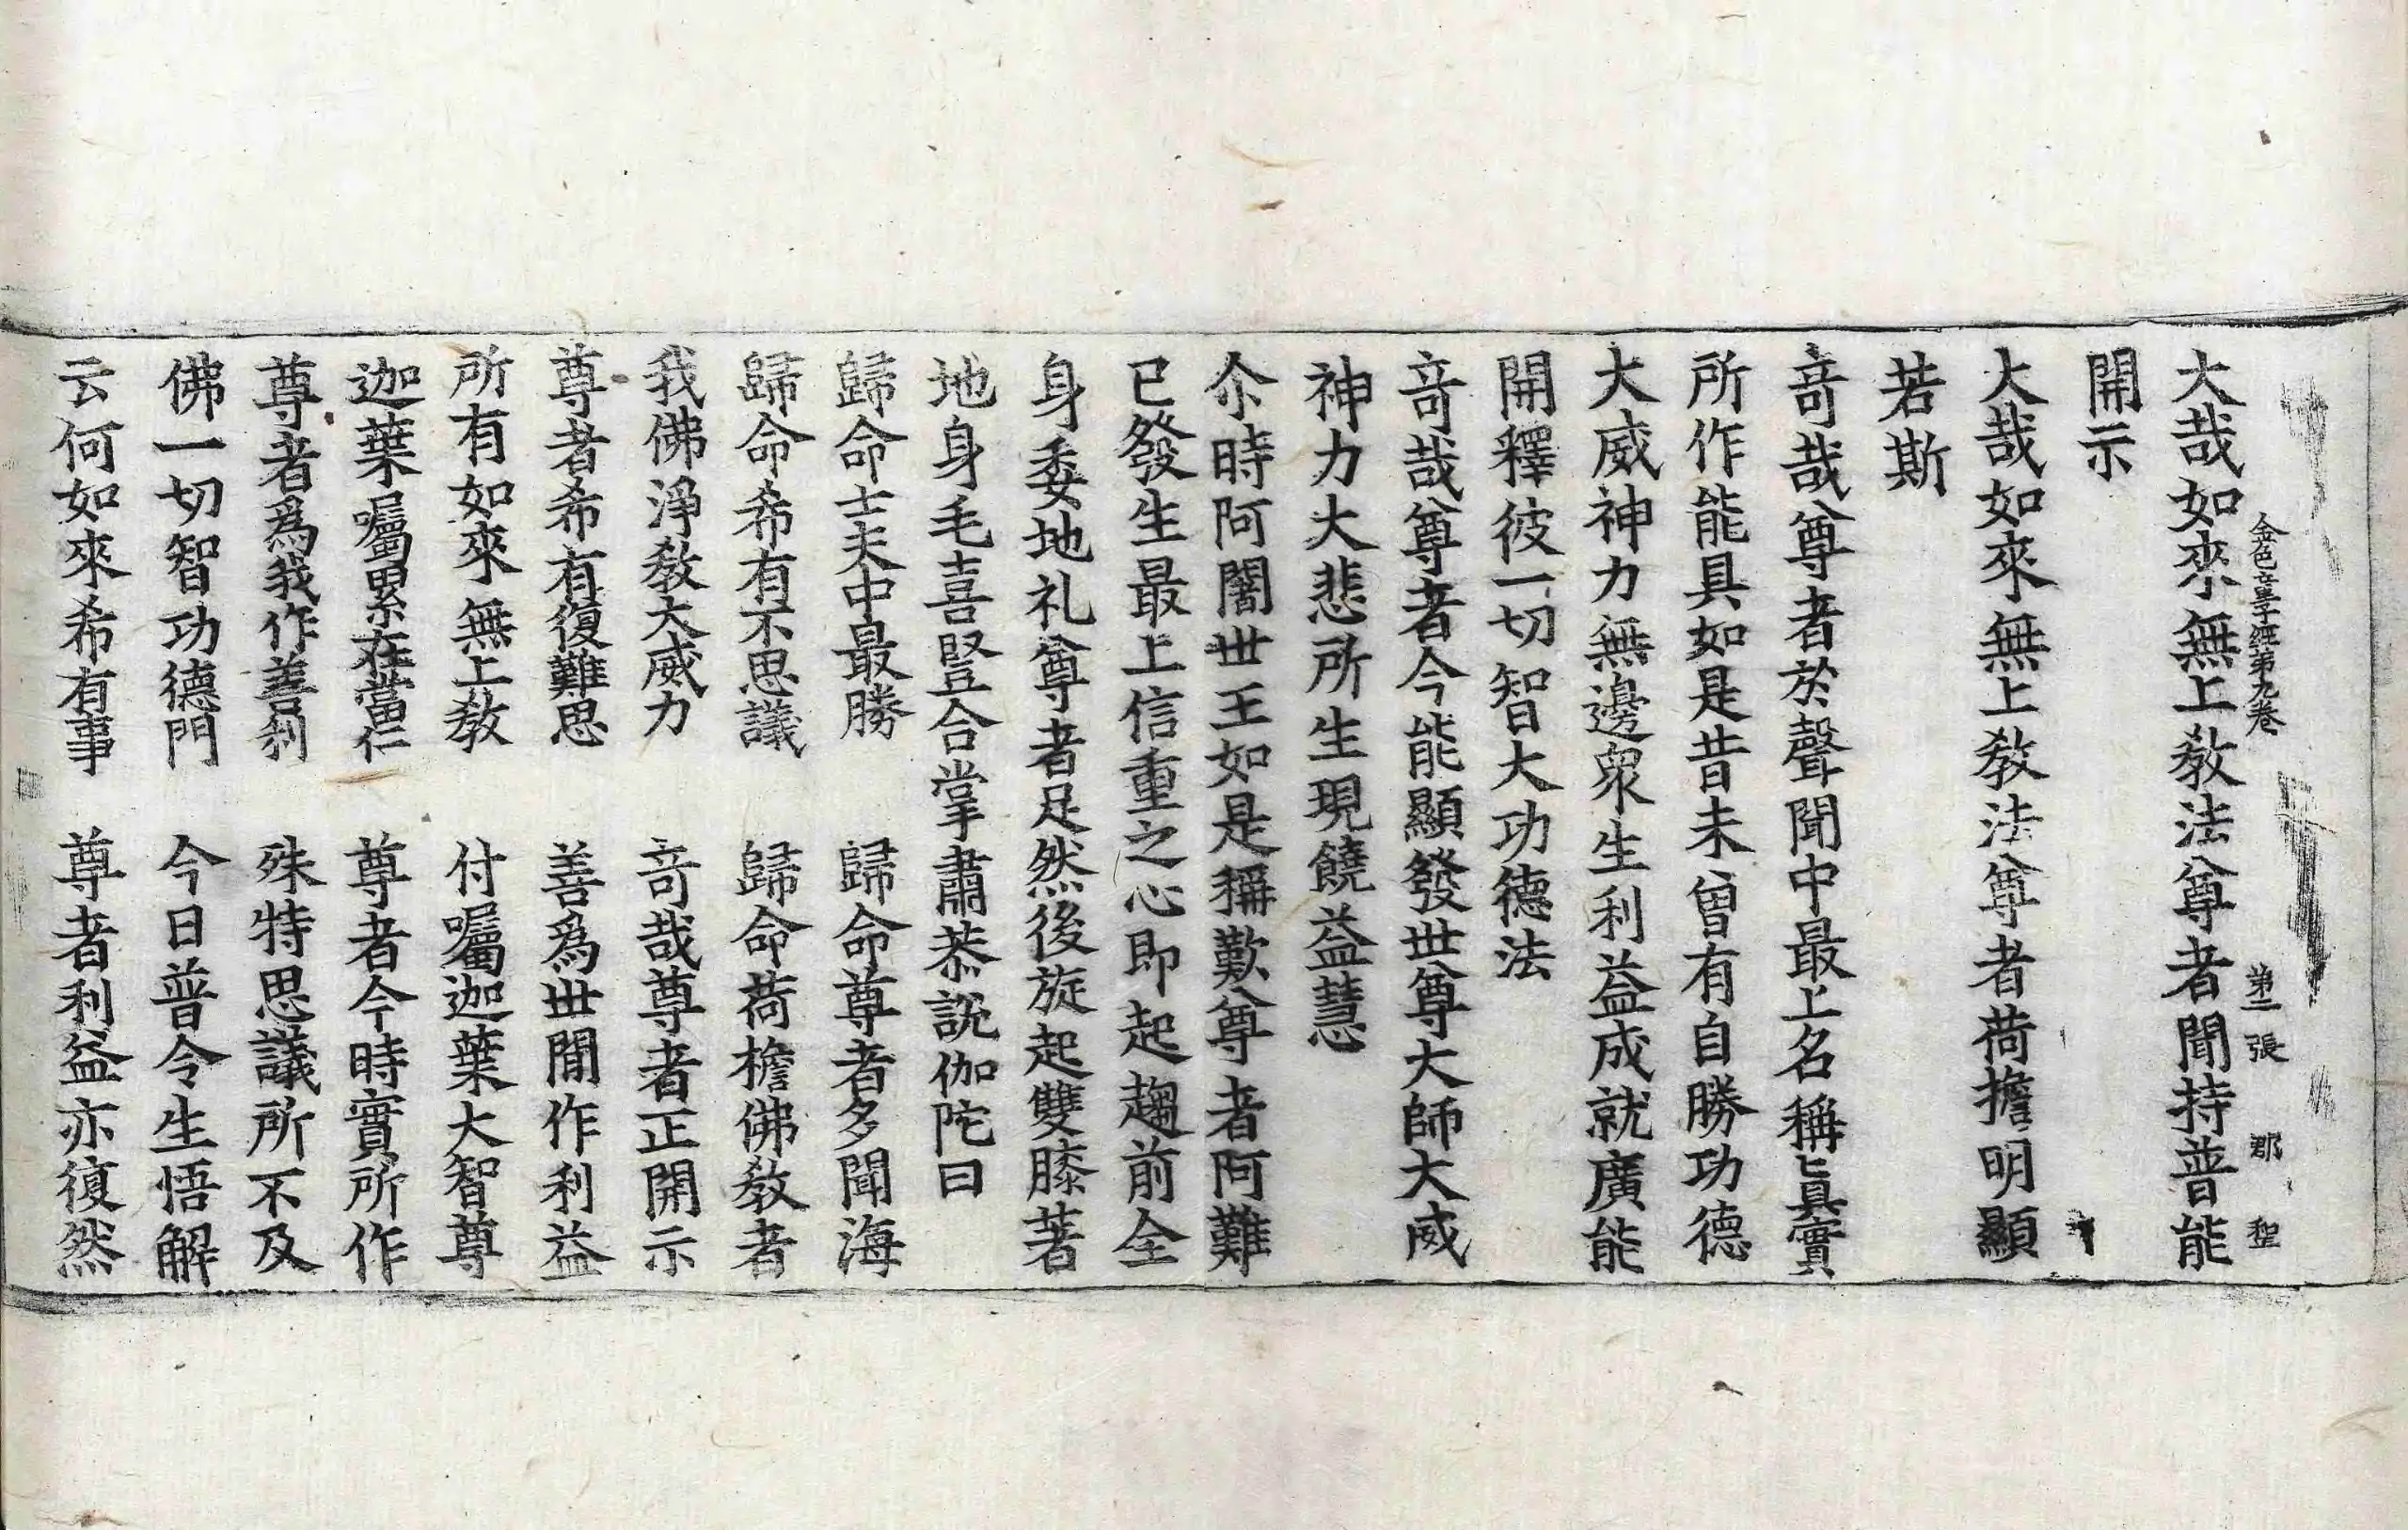 金色童子経第九卷 第二張 郡 聖
大哉如來無上教法尊者聞持普能
開示
大哉如來無上教法尊者荷擔明顯
若斯
竒哉尊者於聲聞中最上名稱眞實
所作能具如是昔未曾有自勝功德
大威神力無邊衆生利益成就廣能
開釋彼一切智大功德法
竒哉尊者今能顯發世尊大師大威
神力大悲所生現饒益慧
尒時阿闍世王如是稱歎尊者阿難
已發生最上信重之心即起趨前全
身委地礼尊者足然後旋起雙膝著
地身毛喜豎合掌肅恭說伽陀曰
歸命士夫中最勝 歸命尊者多聞海
歸命希有不思議 歸命荷擔佛教者
我佛淨教大威力 竒哉尊者正開示
尊者希有復難思 善爲世間作利益
所有如來無上教 付囑迦葉大智尊
迦葉囑累在當仁 尊者今時實所作
尊者爲我作善利 殊特思議所不及
佛一切智功德門 今日普令生悟解
云何如來希有事 尊者利益亦復然